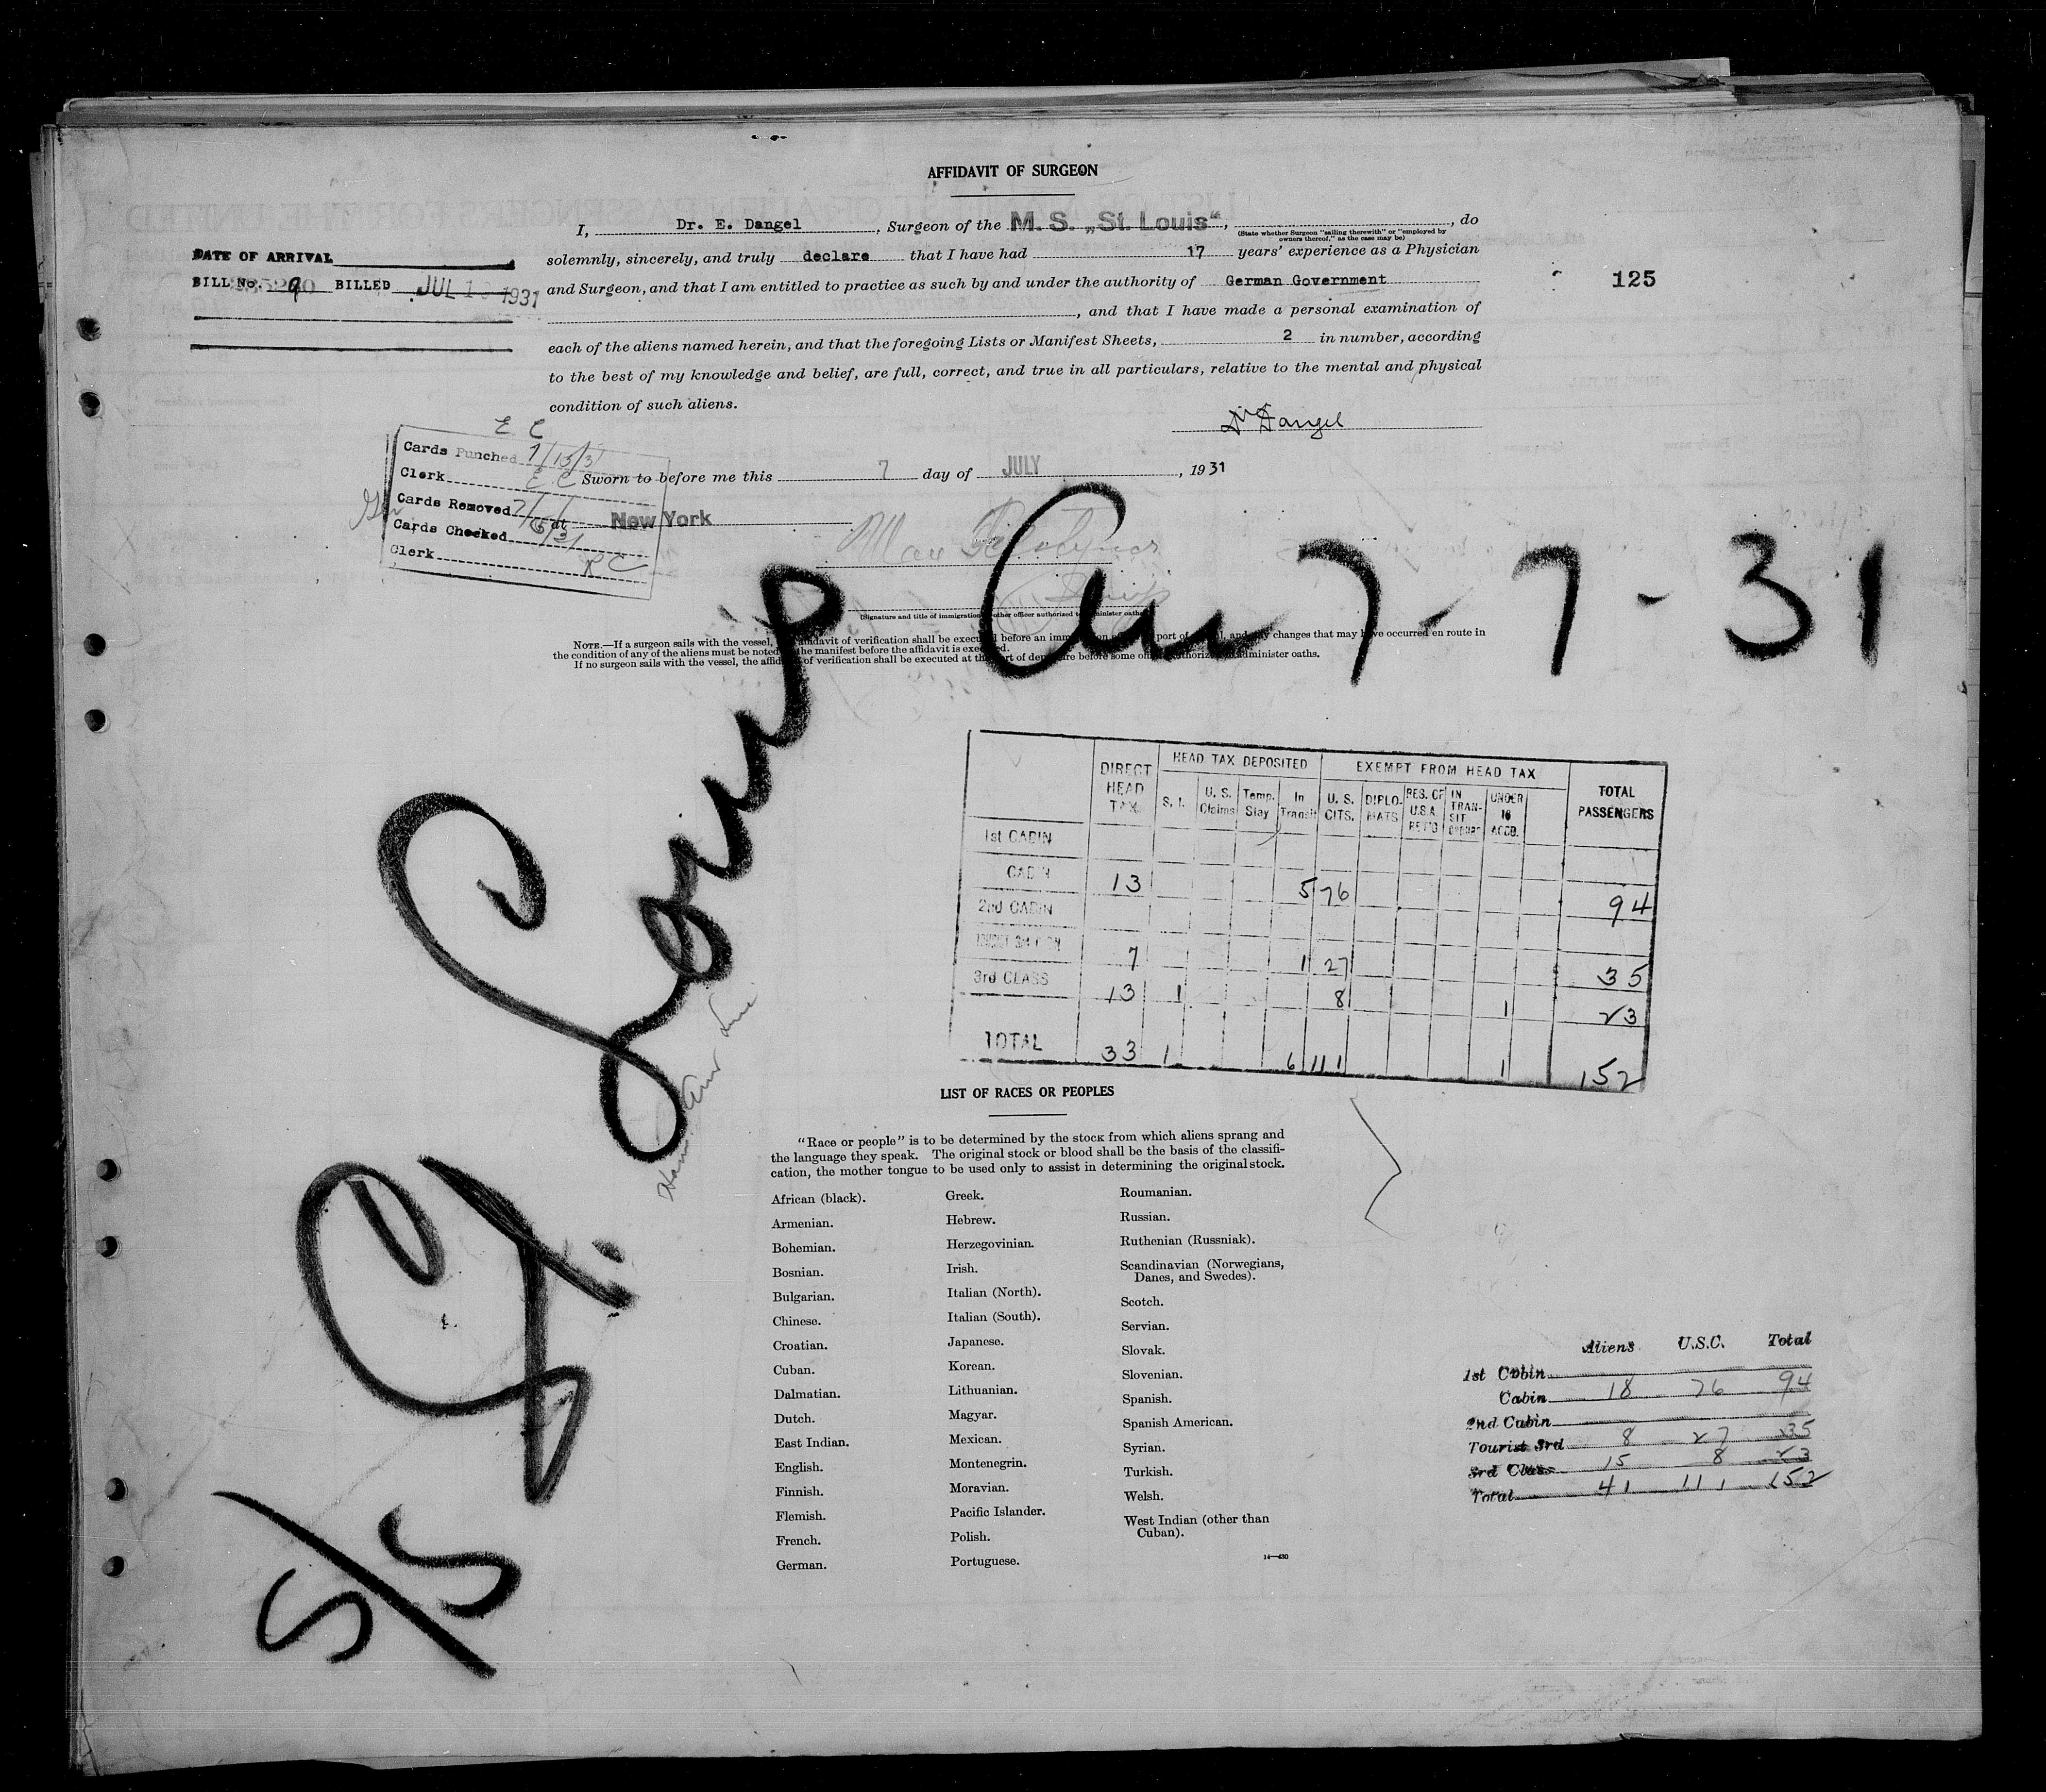 AFFIDAVIT OF SURGEON
I, Dr. E. Dangel, Surgeon of the M. S. „St. Louis“, , do
(State whether Surgeon "sailing therewith" or "employed by
owners thereof," as the case may be)
DATE OF ARRIVAL
solemnly, sincerely, and truly declare that I have had 17 years' experience as a Physician
BILL No. BILLED JUL 1931
and Surgeon, and that I am entitled to practice as such by and under the authority of German Government
125
, and that I have made a personal examination of
each of the aliens named herein, and that the foregoing Lists or Manifest Sheets, 2 in number, according
to the best of my knowledge and belief, are full, correct, and true in all particulars, relative to the mental and physical
condition of such aliens.
Dr Dangel
E C
Cards Punched 7/15/31
Clerk E C
Cards Removed 7/
Cards Checked 6/31
Clerk R C
Sworn to before me this 7 day of JULY, 1931
at New York
(Signature and title of immigration or other officer authorized to administer oaths)
NOTE.—If a surgeon sails with the vessel, the affidavit of verification shall be executed before an immigration officer at port of arrival, and any changes that may have occurred en route in
the condition of any of the aliens must be noted on the manifest before the affidavit is executed.
If no surgeon sails with the vessel, the affidavit of verification shall be executed at the port of departure before some officer authorized to administer oaths.
S/S St. Louis Arr 7-7-31
DIRECT HEAD TAX HEAD TAX DEPOSITED EXEMPT FROM HEAD TAX TOTAL PASSENGERS
S. I. U. S. Claims Temp. Stay In Transit U. S. CITS. DIPLO-MATS RES. OF U.S.A. RET'G IN TRAN-SIT UNDER 16 ACCD.
1st CABIN
CABIN 13 5 76 94
2nd CABIN
7 1 27 35
3rd CLASS 13 1 8 1 23
TOTAL 33 1 6 111 1 152
LIST OF RACES OR PEOPLES
"Race or people" is to be determined by the stock from which aliens sprang and
the language they speak. The original stock or blood shall be the basis of the classifi-
cation, the mother tongue to be used only to assist in determining the original stock.
African (black).
Armenian.
Bohemian.
Bosnian.
Bulgarian.
Chinese.
Croatian.
Cuban.
Dalmatian.
Dutch.
East Indian.
English.
Finnish.
Flemish.
French.
German.
Greek.
Hebrew.
Herzegovinian.
Irish.
Italian (North).
Italian (South).
Japanese.
Korean.
Lithuanian.
Magyar.
Mexican.
Montenegrin.
Moravian.
Pacific Islander.
Polish.
Portuguese.
Roumanian.
Russian.
Ruthenian (Russniak).
Scandinavian (Norwegians,
Danes, and Swedes).
Scotch.
Servian.
Slovak.
Slovenian.
Spanish.
Spanish American.
Syrian.
Turkish.
Welsh.
West Indian (other than
Cuban).
14—430
Aliens U.S.C. Total
1st Cabin
Cabin 18 76 94
2nd Cabin
Tourist 3rd 8 27 35
3rd Class 15 8 23
Total 41 111 152